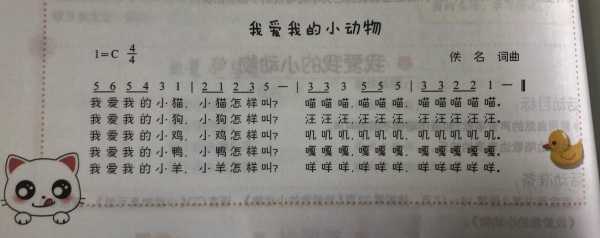 我爱我的小动物
1=C 4/4
佚 名 词曲
5 6 5 4 3 1 | 2 1 2 3 5 — | 3 3 3 5 5 5 | 3 3 2 2 1 — ‖
我爱我的小猫，小猫怎样叫？ 喵喵喵，喵喵喵，喵喵喵喵喵。
我爱我的小狗，小狗怎样叫？ 汪汪汪，汪汪汪，汪汪汪汪汪。
我爱我的小鸡，小鸡怎样叫？ 叽叽叽，叽叽叽，叽叽叽叽叽。
我爱我的小鸭，小鸭怎样叫？ 嘎嘎嘎，嘎嘎嘎，嘎嘎嘎嘎嘎。
我爱我的小羊，小羊怎样叫？ 咩咩咩，咩咩咩，咩咩咩咩咩。